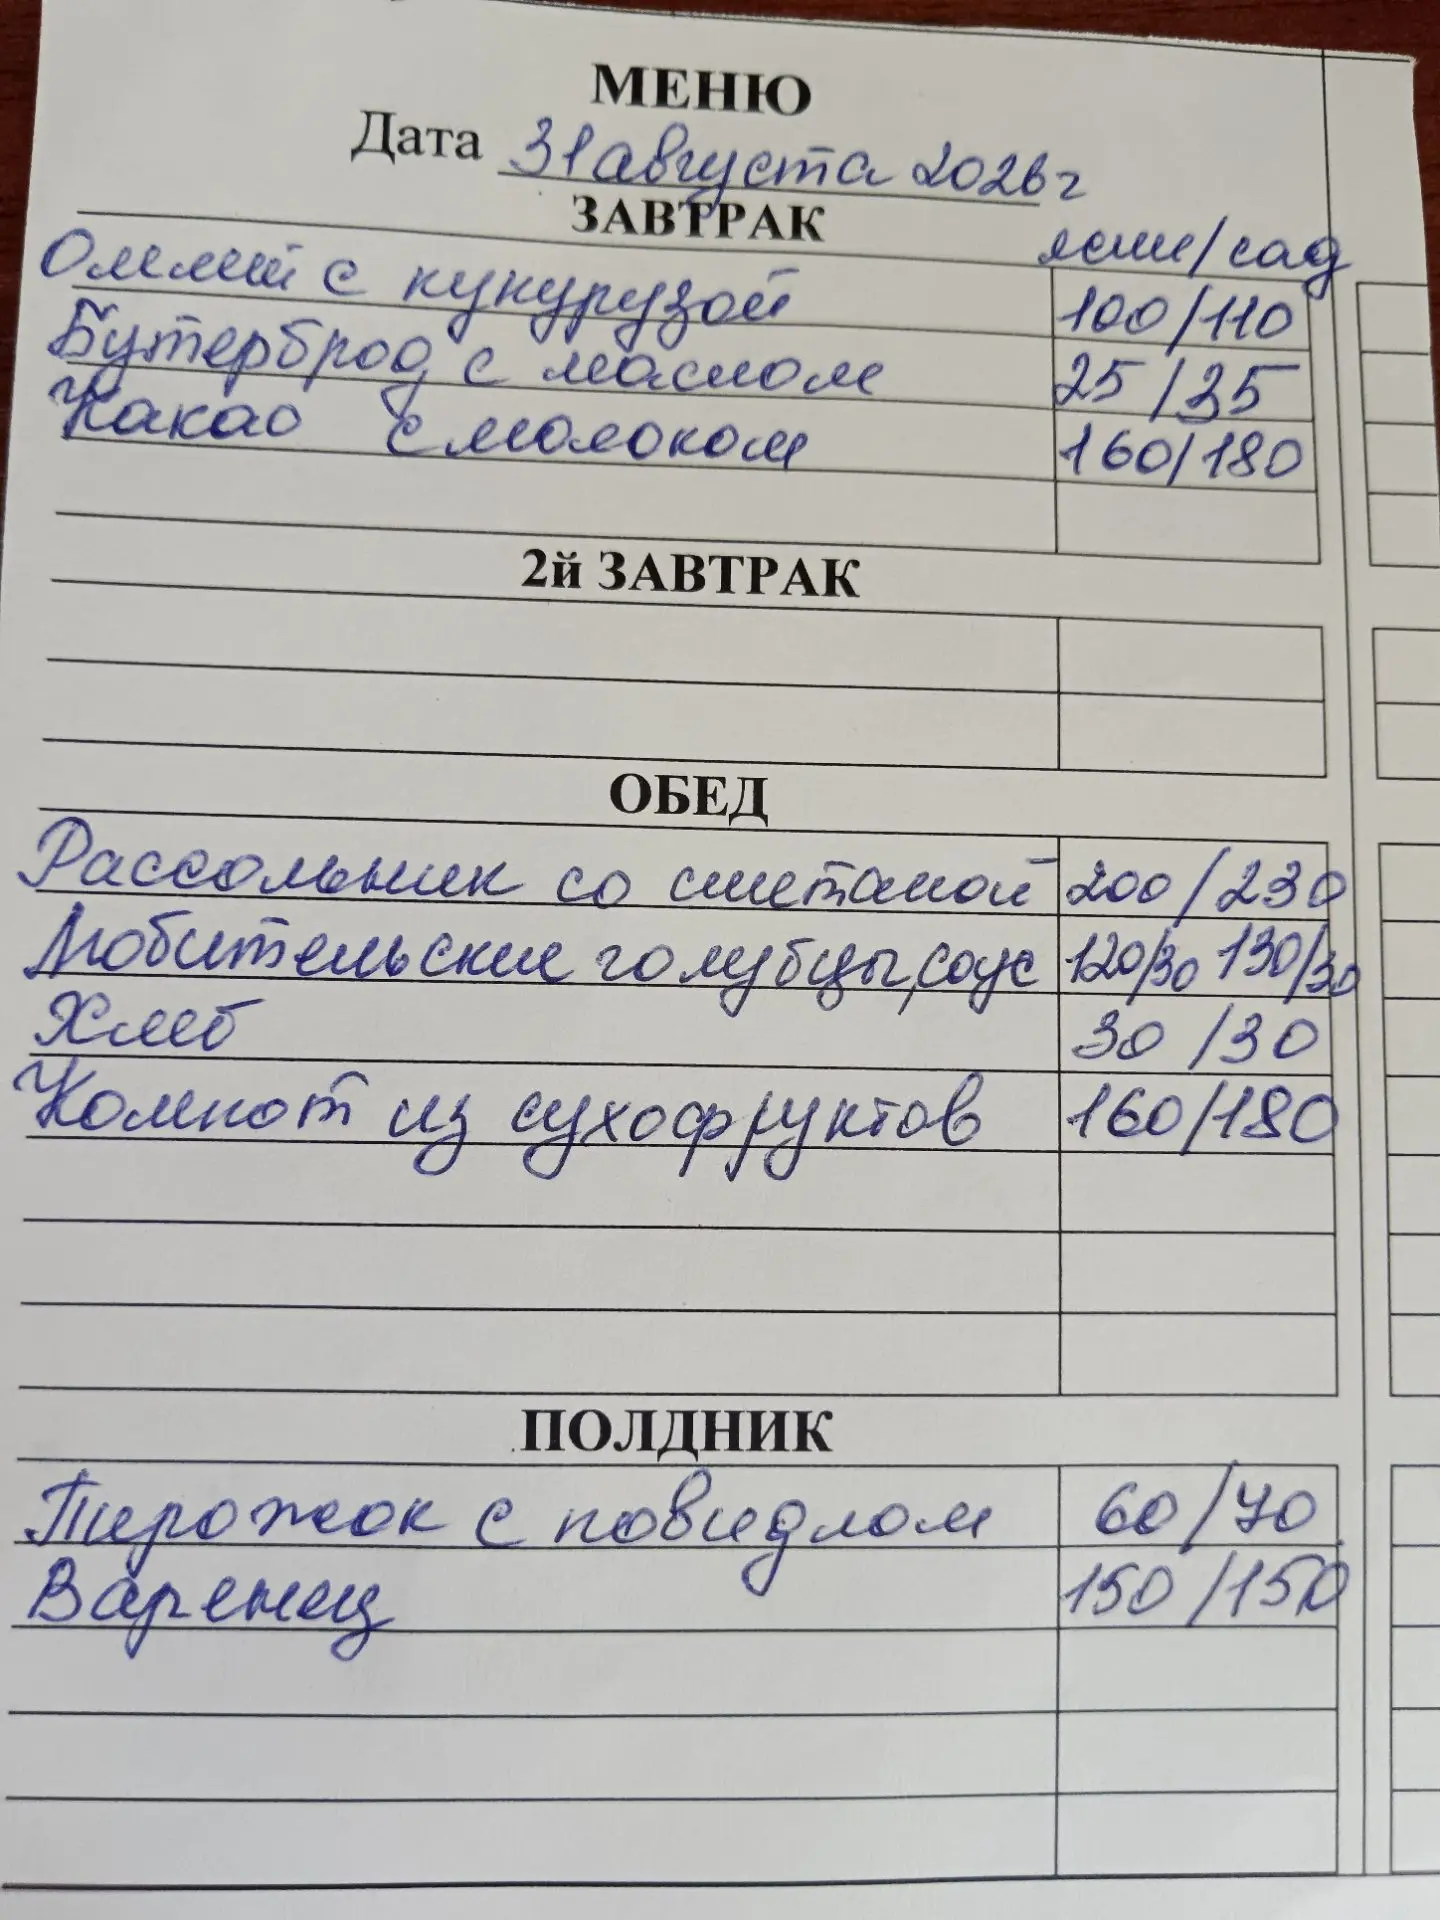 МЕНЮ
Дата 31 августа 2026 г
ЗАВТРАК ясли/сад
Омлет с кукурузой 100/110
Бутерброд с маслом 25/35
Какао с молоком 160/180
2й ЗАВТРАК
ОБЕД
Рассольник со сметаной 200/230
Любительские голубцы, соус 120/30 130/30
Хлеб 30/30
Компот из сухофруктов 160/180
ПОЛДНИК
Пирожок с повидлом 60/70
Варенец 150/150